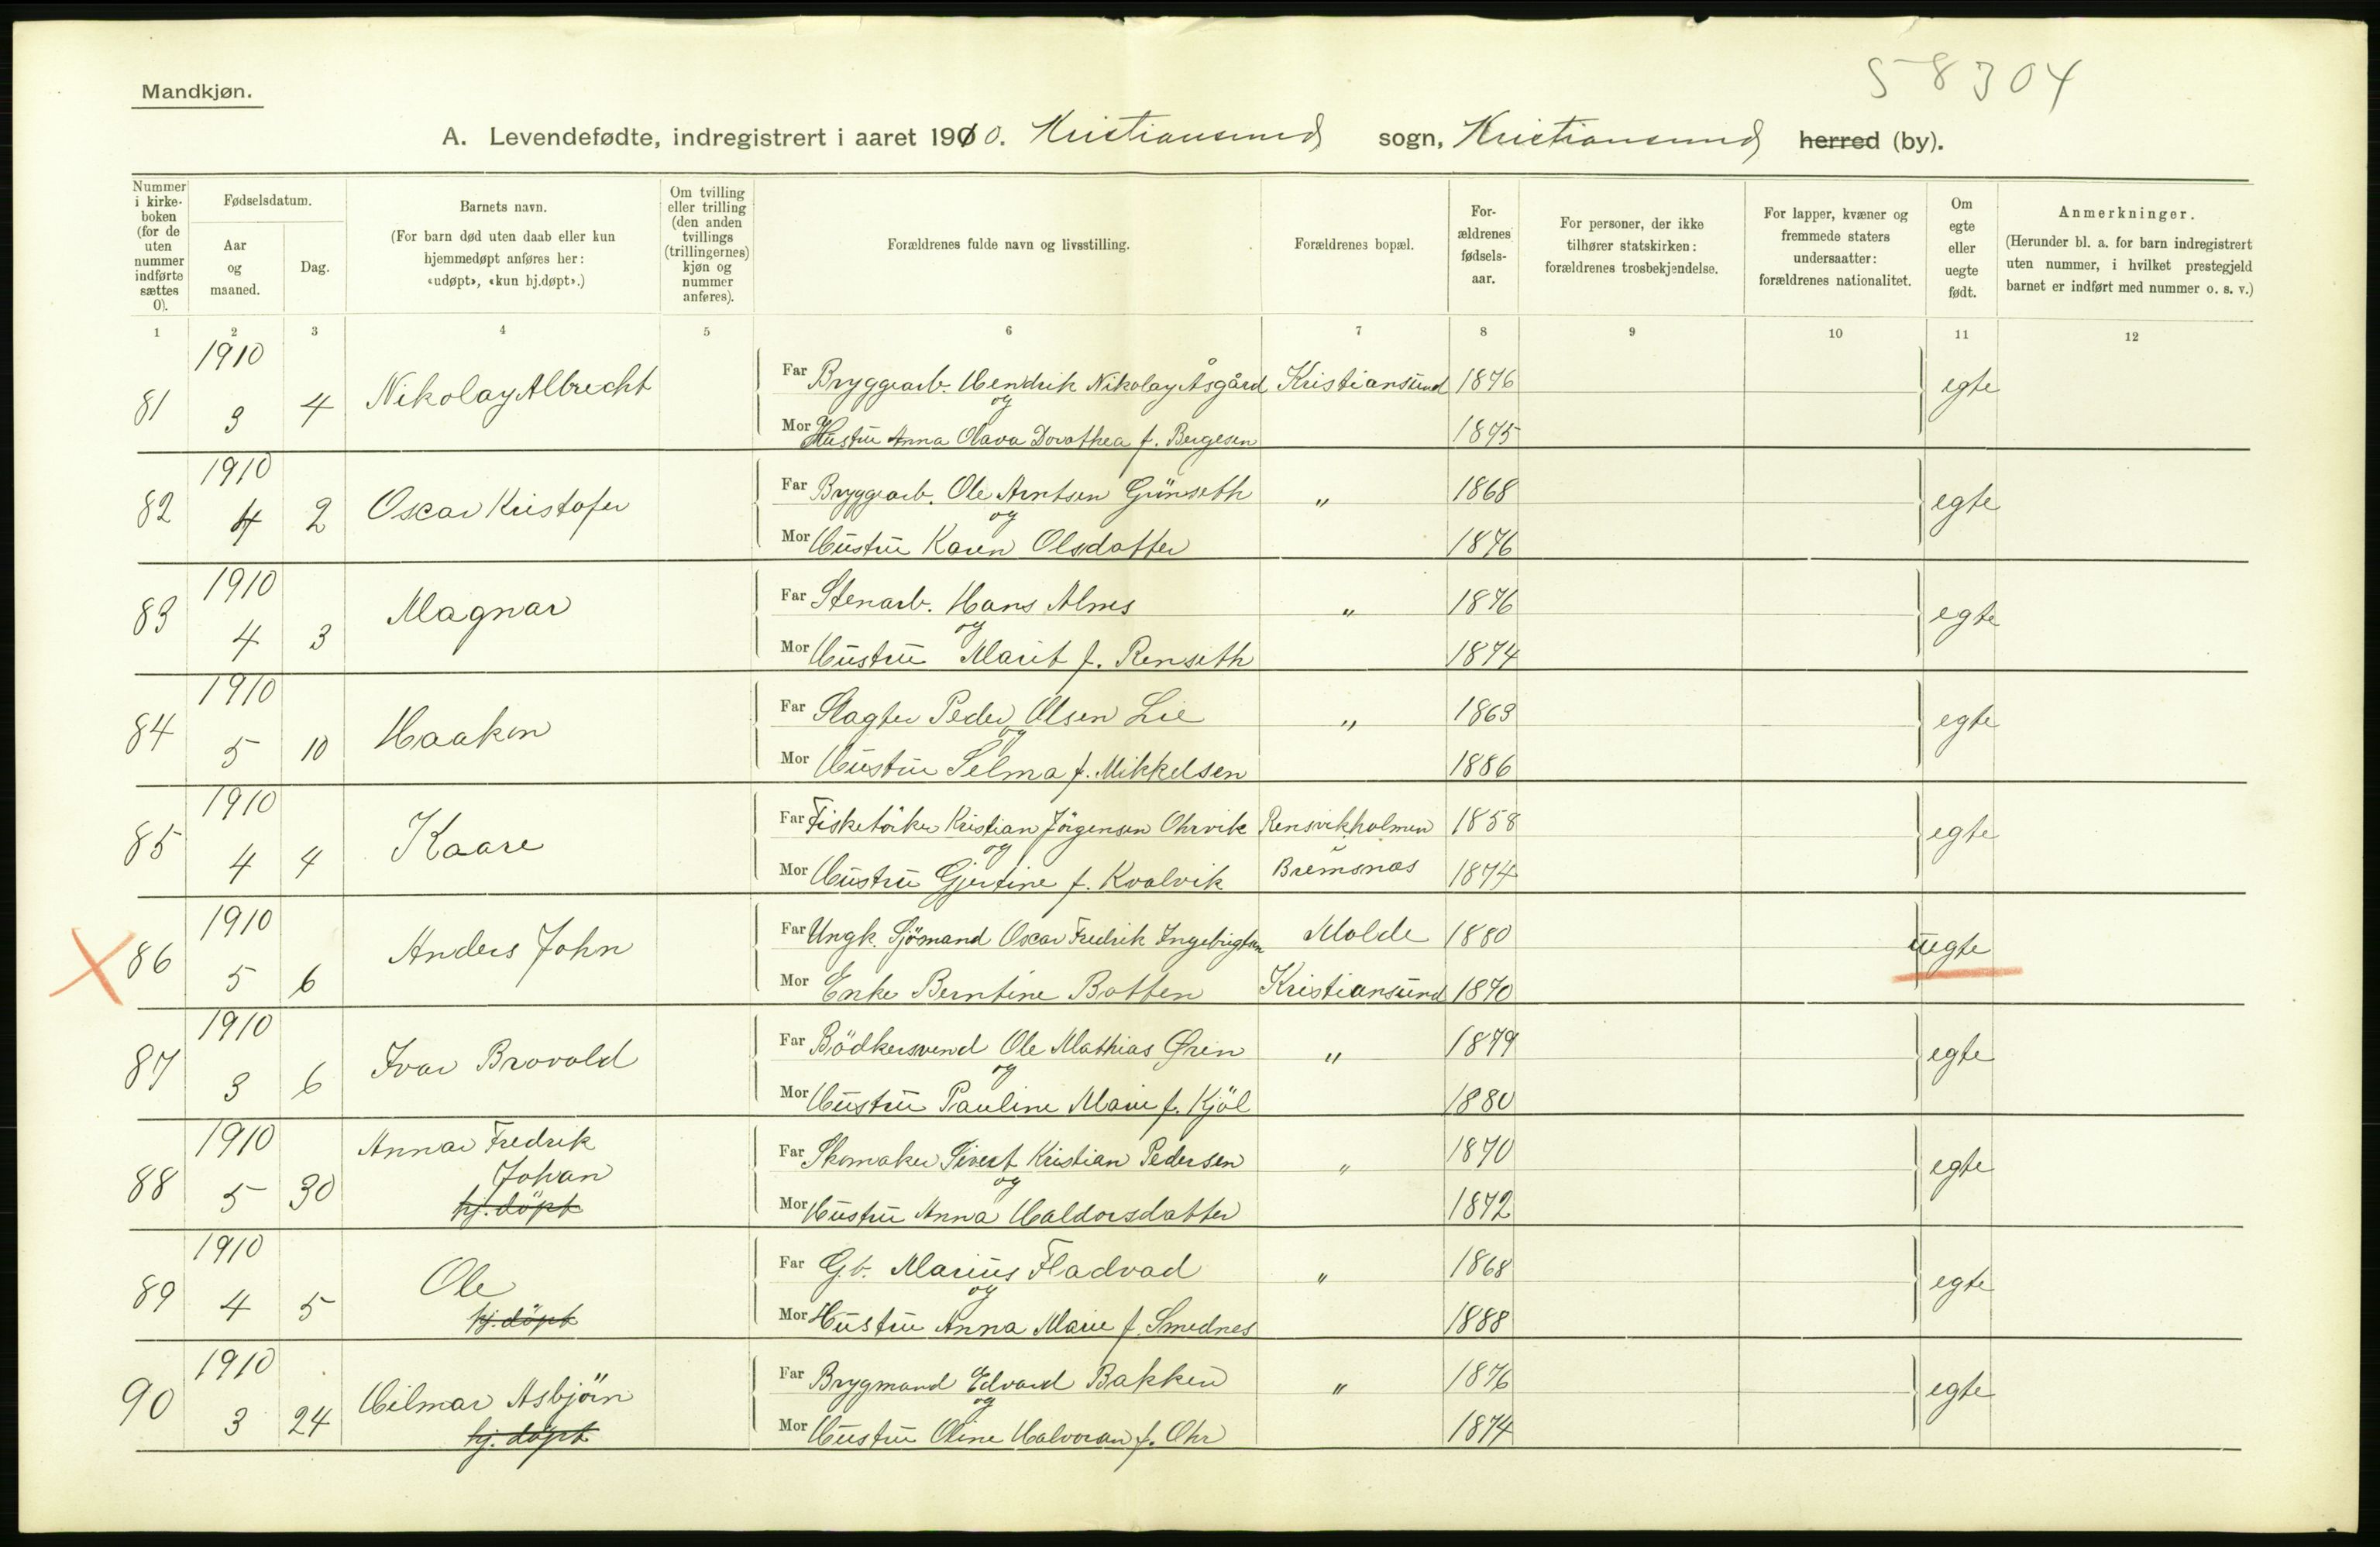 58304
Mandkjøn.
A. Levendefødte, indregistrert i aaret 1910. Kristiansund sogn, Kristiansund herred (by).
Nummer i kirke-boken (for de uten nummer indførte sættes 0).
Fødselsdatum.
Aar og maaned.
Dag.
Barnets navn.
(For barn død uten daab eller kun hjemmedøpt anføres her: «udøpt», «kun hj.døpt».)
Om tvilling eller trilling (den anden tvillings (trillingernes) kjøn og nummer anføres).
Forældrenes fulde navn og livsstilling.
Forældrenes bopæl.
For-ældrenes fødsels-aar.
For personer, der ikke tilhører statskirken: forældrenes trosbekjendelse.
For lapper, kvæner og fremmede staters undersaatter: forældrenes nationalitet.
Om egte eller uegte født.
Anmerkninger.
(Herunder bl. a. for barn indregistrert uten nummer, i hvilket prestegjeld barnet er indført med nummer o. s. v.)
1 2 3 4 5 6 7 8 9 10 11 12
81 1910 3 4 Nikolay Albrecht
Far Bryggearb. Hendrik Nikolay Åsgård Kristiansund 1876 egte
og
Mor Hustru Anna Olava Dorothea f. Bergesen 1875
82 1910 4 2 Oscar Kristofer
Far Bryggearb. Ole Arntsen Grünseth " 1868 egte
og
Mor Hustru Karen Olsdatter 1876
83 1910 4 3 Magnar
Far Stenarb. Hans Alnes " 1876 egte
og
Mor Hustru Marit f. Renseth 1874
84 1910 5 10 Haakon
Far Slagter Peder Olsen Lie " 1863 egte
og
Mor Hustru Selma f. Mikkelsen 1886
85 1910 4 4 Kaare
Far Fisketörker Kristian Jörgensen Ohrvik Rensvikholmen 1858 egte
og
Mor Hustru Gjertine f. Kvalvik Bremsnæs 1874
86 1910 5 6 Anders John
Far Ungk. Sjömand Oscar Fredrik Ingebrigtsen Molde 1880 uegte
Mor Enke Berntine Botten Kristiansund 1870
87 1910 3 6 Ivar Brovold
Far Bödkersvend Ole Mathias Øren " 1879 egte
og
Mor Hustru Pauline Marie f. Kjöl 1880
88 1910 5 30 Annar Fredrik
Johan
hj. döpt
Far Skomaker Sivert Kristian Pedersen " 1870 egte
og
Mor Hustru Anna Haldorsdatter 1872
89 1910 4 5 Ole
hj. döpt
Far Gb. Marius Fladvad " 1868 egte
og
Mor Hustru Anna Marie f. Smednes 1888
90 1910 3 24 Hilmar Asbjörn
hj. döpt
Far Brygmand Edvard Bakken " 1876 egte
og
Mor Hustru Oline Halvoran f. Ohr 1874